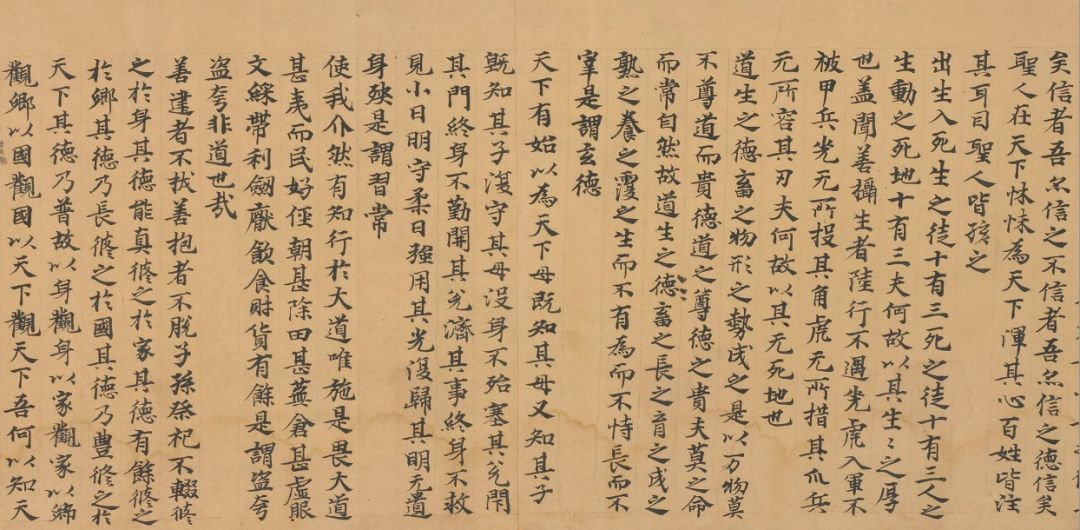 矣信者吾亦信之不信者吾亦信之德信矣
聖人在天下怵怵為天下渾其心百姓皆注
其耳目聖人皆孩之
出生入死生之徒十有三死之徒十有三人之
生動之死地十有三夫何故以其生〻之厚
也盖聞善攝生者陸行不遇兕虎入軍不
被甲兵兕无所投其角虎无所措其爪兵
无所容其刃夫何故以其无死地也
道生之德畜之物形之勢成之是以万物莫
不尊道而貴德道之尊德之貴夫莫之命
而常自然故道生之德畜之長之育之成之
熟之養之覆之生而不有為而不恃長而不
宰是謂玄德
天下有始以為天下母既知其母又知其子
既知其子復守其母沒身不殆塞其兊閇
其門終身不勤開其兊濟其事終身不救
見小曰明守柔曰強用其光復歸其明无遺
身殃是謂習常
使我介然有知行於大道唯施是畏大道
甚夷而民好徑朝甚除田甚蕪倉甚虛服
文綵帶利劒厭飲食財貨有餘是謂盜夸
盜夸非道也哉
善建者不拔善抱者不脫子孫祭祀不輟脩
之於身其德能真脩之於家其德有餘脩之
於鄉其德乃長脩之於國其德乃豐脩之於
天下其德乃普故以身觀身以家觀家以鄉
觀鄉以國觀國以天下觀天下吾何以知天